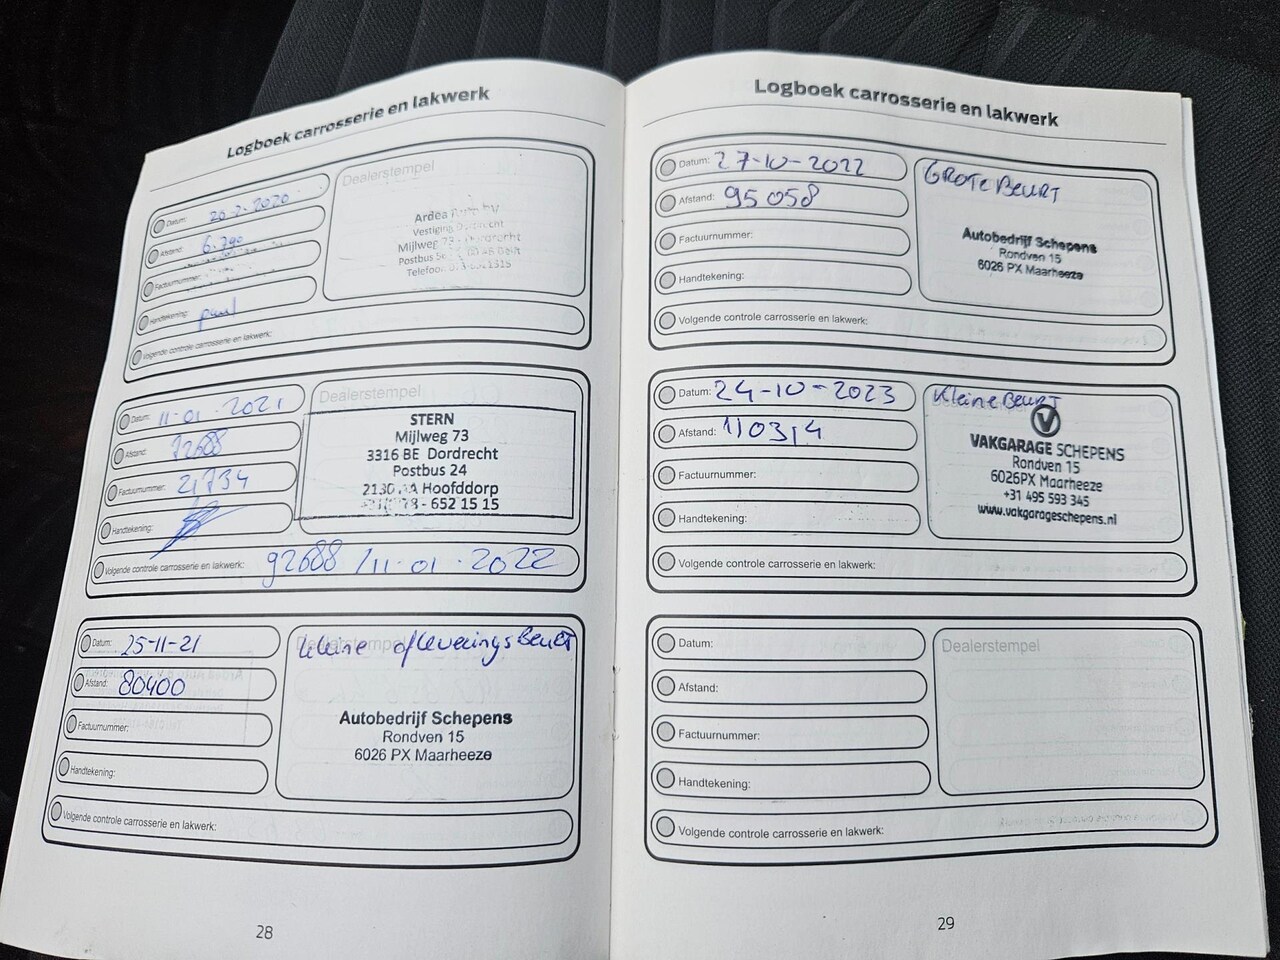 Logboek carrosserie en lakwerk
Datum: 20-2-2020
Afstand: 6.790
Factuurnummer:
Handtekening: paul
Volgende controle carrosserie en lakwerk:
Dealerstempel
Ardea
Vestiging
Mijlweg 73 - Dordrecht
Postbus
Telefoon
Datum: 11-01-2021
Afstand: 72688
Factuurnummer: 21734
Handtekening:
Volgende controle carrosserie en lakwerk: 92688 / 11-01-2022
Dealerstempel
STERN
Mijlweg 73
3316 BE Dordrecht
Postbus 24
2130 AA Hoofddorp
- 652 15 15
Datum: 25-11-21
Afstand: 80400
Factuurnummer:
Handtekening:
Volgende controle carrosserie en lakwerk:
Dealerstempel
kleine afleveringsBeurt
Autobedrijf Schepens
Rondven 15
6026 PX Maarheeze
28
Logboek carrosserie en lakwerk
Datum: 27-10-2022
Afstand: 95058
Factuurnummer:
Handtekening:
Volgende controle carrosserie en lakwerk:
GROTE BEURT
Autobedrijf Schepens
Rondven 15
6026 PX Maarheeze
Datum: 24-10-2023
Afstand: 110314
Factuurnummer:
Handtekening:
Volgende controle carrosserie en lakwerk:
Kleine BeuRT
VAKGARAGE SCHEPENS
Rondven 15
6026PX Maarheeze
+31 495 593 345
www.vakgarageschepens.nl
Datum:
Afstand:
Factuurnummer:
Handtekening:
Volgende controle carrosserie en lakwerk:
Dealerstempel
29